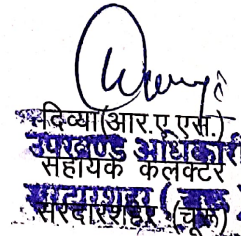 दिव्या(आर.ए.एस.)
उपखण्ड अधिकारी
सहायक कलक्टर
सरदारशहर (चूरू)
सरदारशहर (चूरू)